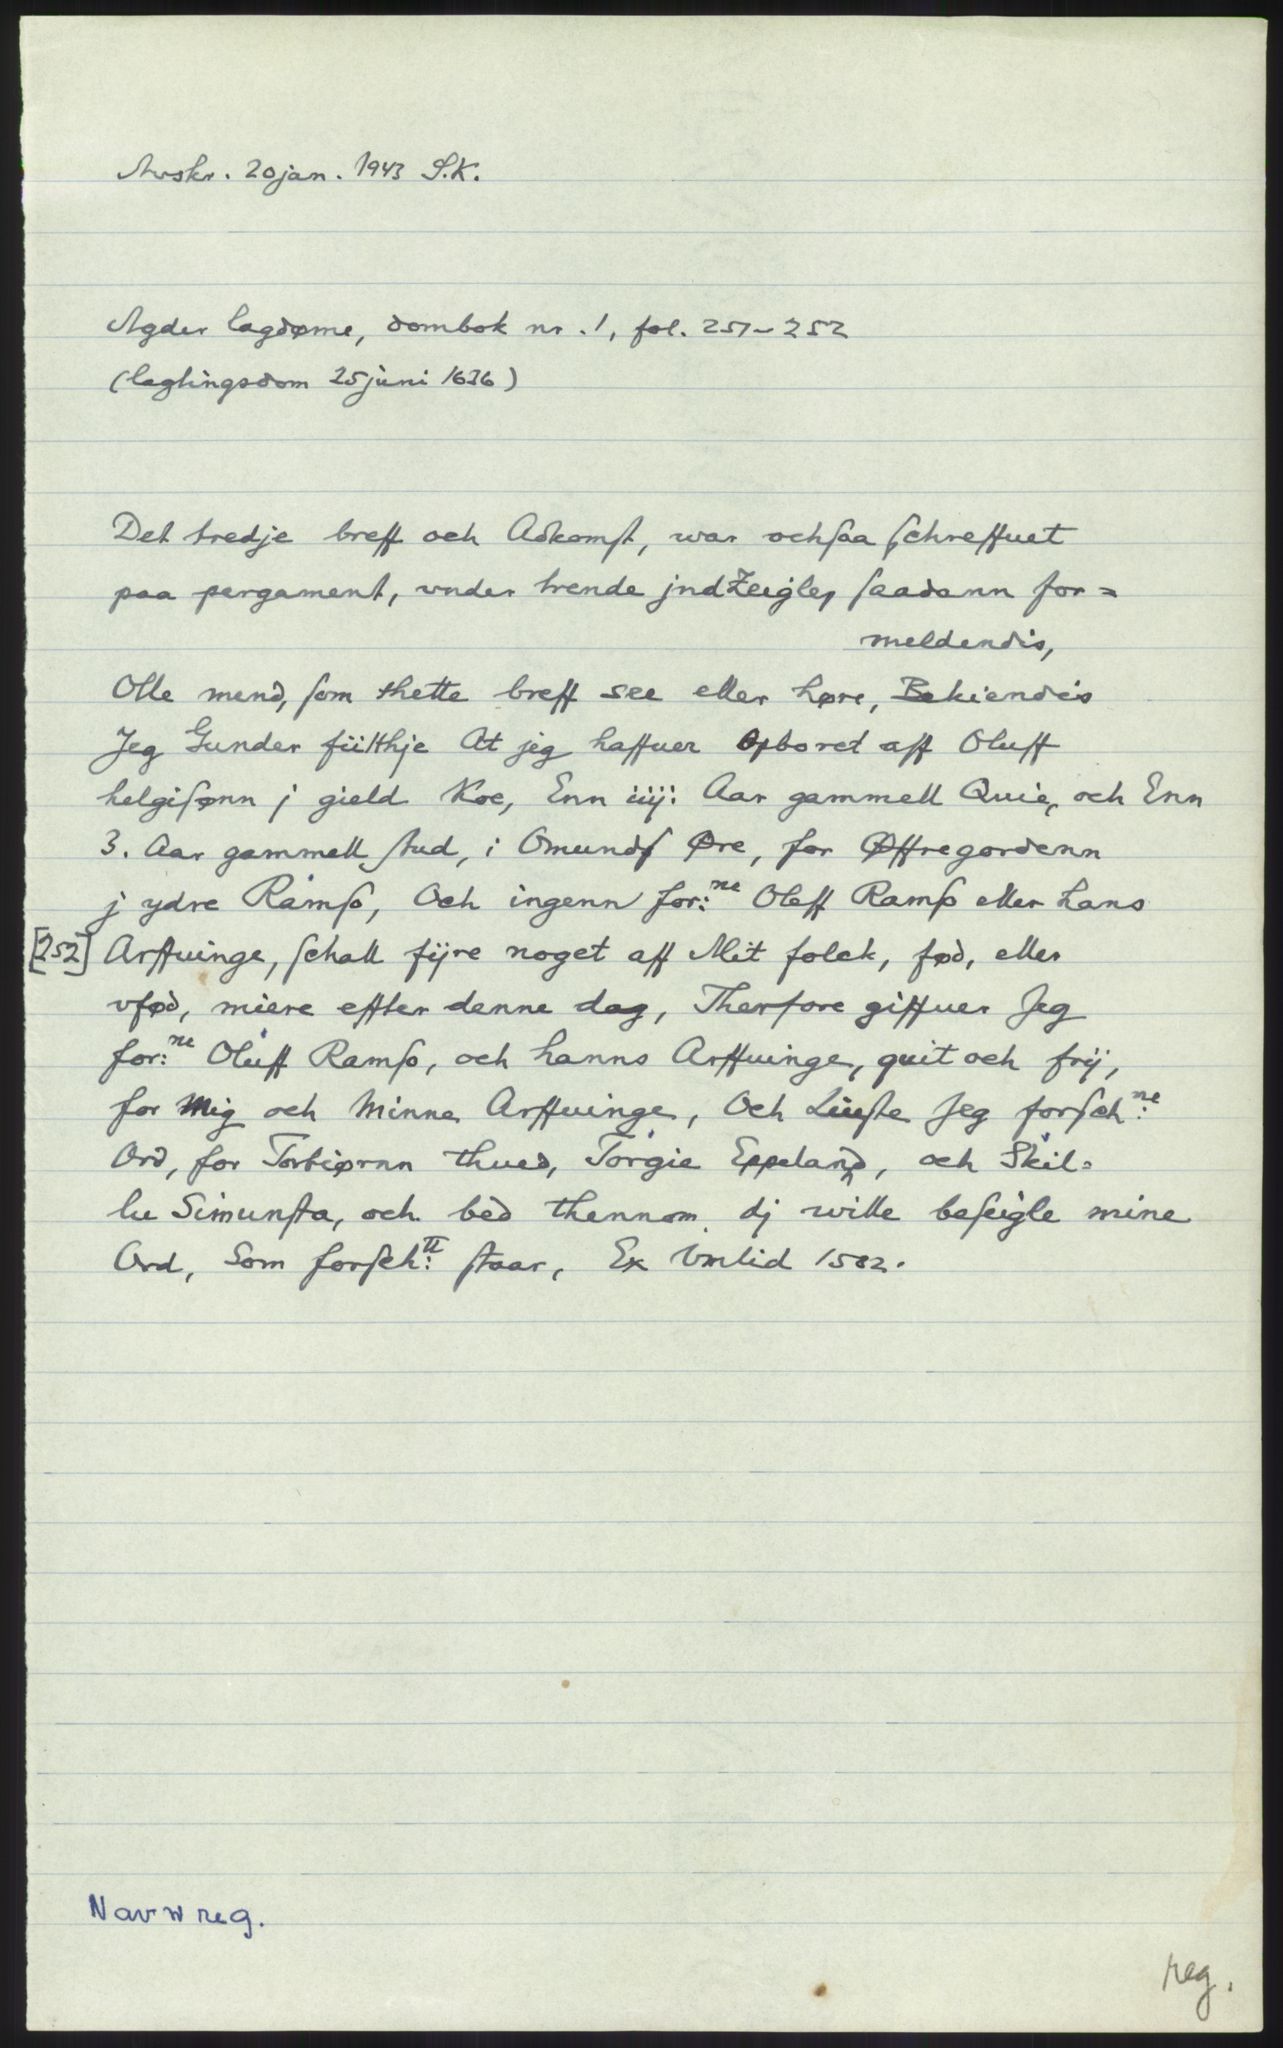 Avskr. 20 jan. 1943 S.K.
Agder lagdøme, dombok nr. 1, fol. 251-252
(lagtingsdom 25 juni 1636)
Det tredje breff och Adkomst, war ochsaa schreffuet
paa pergament, vnder trende jndZeigler saadann for=
meldendis,
Olle mend, som thette breff see eller høre, Bekiendeis
Jeg Gunder fültthje At jeg haffuer Opboret aff Oluff
helgisønn j gield Koe, Enn iiij: Aar gammell Quie, och Enn
3. Aar gammell stud, i Omunds Øre, for Øffregordenn
j ydre Ramss, Och ingenn for:ne Oleff Ramss eller hans
[252] Arffuinge, schall fijre noget aff Mit folck, fød, eller
vfød, miere effter denne dag, Therfore giffuer Jeg
for:ne Oluff Ramss, och hanns Arffuinge, quit och frij,
for Mig och Minne Arffuinge, Och Liuste Jeg forsch:ne
Ord, for Torbiørnn thued, Torgie Eppeland, och Skil=
lu Simunsta, och bed thennom dj wille beseigle mine
Ord, Som forsch:tt staar, Ex Vmlid 1582.
Navnreg.
reg.